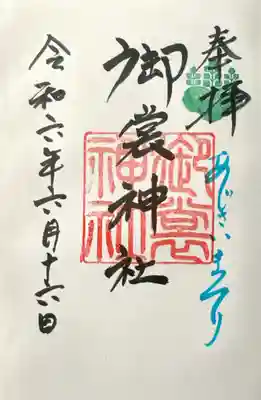 奉拝
あじさいまつり
御裳神社
御裳神社
令和六年六月十六日